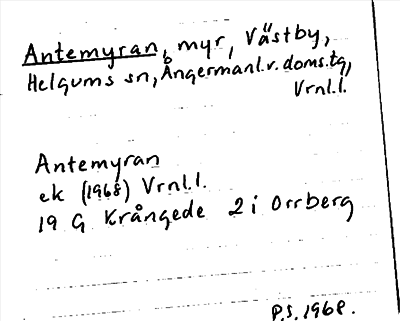 Antemyran, myr, Västby,
Helgums sn, Ångermanl.v.doms.tg,
Vrnl.l.
Antemyran
ek (1968) Vrnl.l.
19 G Krångede 2 i Orrberg
P.S. 1968.